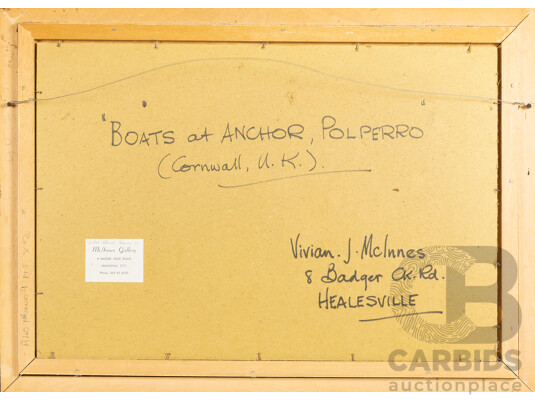 "BOATS at ANCHOR, POLPERRO
(Cornwall, U.K.).
McInnes Gallery
8 BADGER CREEK ROAD
Vivian. J. McInnes
8 Badger Ck. Rd.
HEALESVILLE
CARBIDS
auctionplace